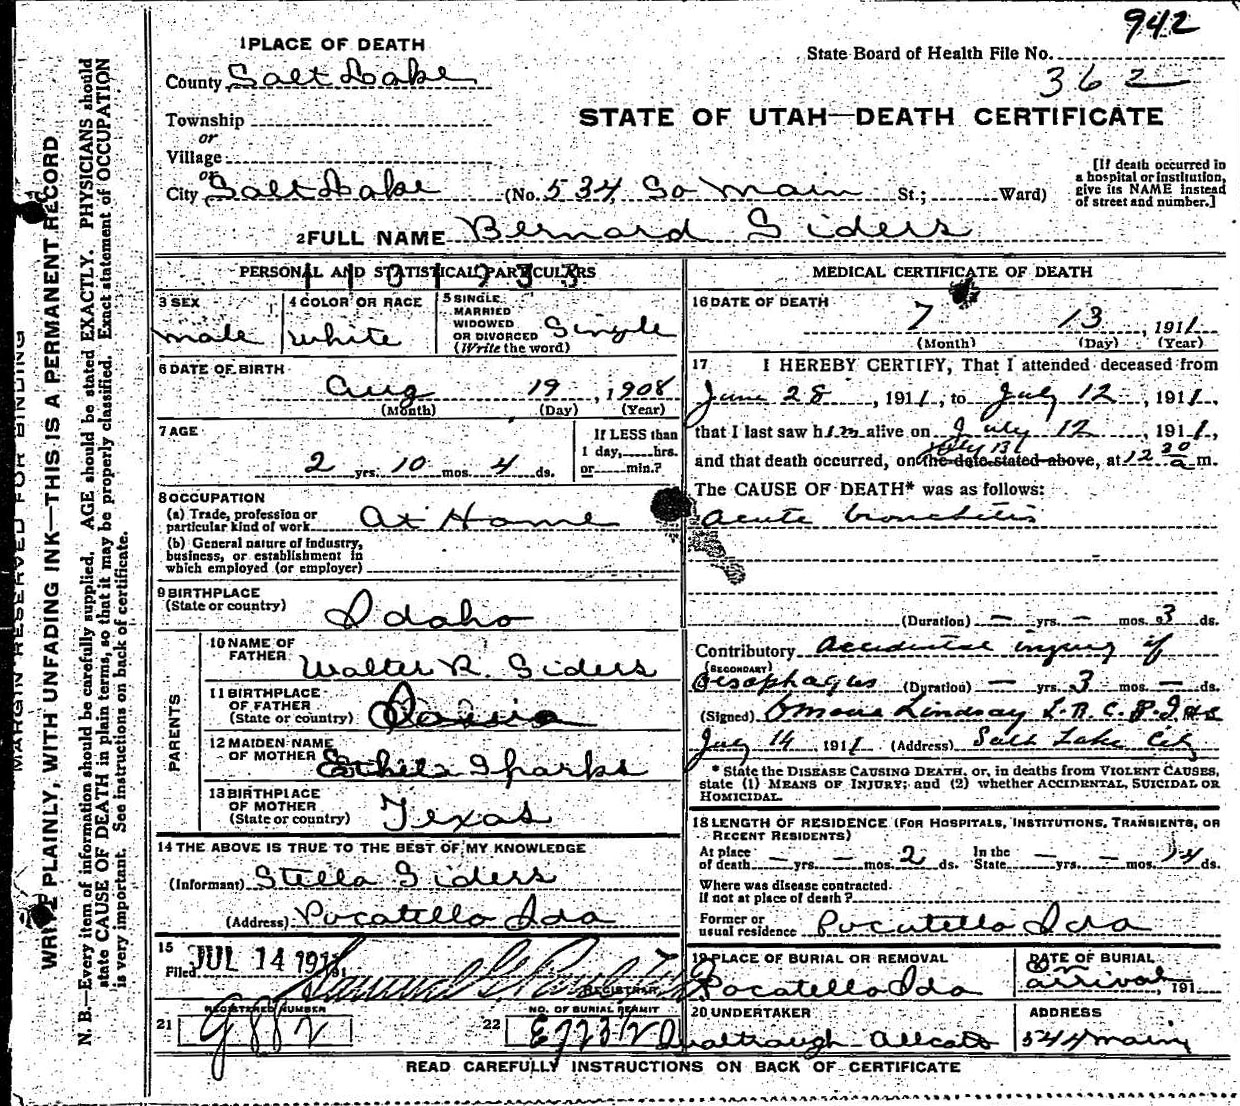 942
State Board of Health File No.
362
1 PLACE OF DEATH
County Salt Lake
STATE OF UTAH—DEATH CERTIFICATE
Township
or
Village
or
City Salt Lake (No. 534 So Main St.; Ward)
[If death occurred in a hospital or institution, give its NAME instead of street and number.]
2 FULL NAME Bernard Siders
PERSONAL AND STATISTICAL PARTICULARS
3 SEX
male
4 COLOR OR RACE
white
5 SINGLE, MARRIED WIDOWED OR DIVORCED (Write the word)
Single
6 DATE OF BIRTH
Aug 19, 1908
(Month) (Day) (Year)
7 AGE
2 yrs. 10 mos. 4 ds.
If LESS than 1 day, hrs. or min.?
8 OCCUPATION
(a) Trade, profession or particular kind of work At Home
(b) General nature of industry, business, or establishment in which employed (or employer)
9 BIRTHPLACE
(State or country) Idaho
PARENTS
10 NAME OF FATHER Walter R. Siders
11 BIRTHPLACE OF FATHER (State or country)
12 MAIDEN NAME OF MOTHER Sparks
13 BIRTHPLACE OF MOTHER (State or country) Texas
14 THE ABOVE IS TRUE TO THE BEST OF MY KNOWLEDGE
(Informant) Stella Siders
(Address) Pocatello Ida
15
Filed JUL 14 1911 191
REGISTRAR
REGISTERED NUMBER
21 9882
NO. OF BURIAL PERMIT
22 E
MEDICAL CERTIFICATE OF DEATH
16 DATE OF DEATH
7 13, 1911
(Month) (Day) (Year)
17 I HEREBY CERTIFY, That I attended deceased from
June 28, 1911, to July 12, 1911,
that I last saw him alive on July 12, 1911,
July 13th
and that death occurred, on the date stated above, at 12 30 a m.
The CAUSE OF DEATH* was as follows:
Acute bronchitis
(Duration) — yrs. — mos. 3 ds.
Contributory Accidental injury of
(SECONDARY)
Oesophagus (Duration) — yrs. 3 mos. — ds.
(Signed) Lindsay L.R.C.P.
July 14 1911 (Address) Salt Lake City
* State the DISEASE CAUSING DEATH, or, in deaths from VIOLENT CAUSES, state (1) MEANS OF INJURY; and (2) whether ACCIDENTAL, SUICIDAL OR HOMICIDAL.
18 LENGTH OF RESIDENCE (FOR HOSPITALS, INSTITUTIONS, TRANSIENTS, OR RECENT RESIDENTS)
At place of death — yrs. — mos. 2 ds. In the State — yrs. — mos. 14 ds.
Where was disease contracted
if not at place of death?
Former or usual residence Pocatello Ida
19 PLACE OF BURIAL OR REMOVAL
Pocatello Ida
DATE OF BURIAL
On arrival, 191
20 UNDERTAKER
ADDRESS
544 Main
READ CAREFULLY INSTRUCTIONS ON BACK OF CERTIFICATE
MARGIN RESERVED FOR BINDING
WRITE PLAINLY, WITH UNFADING INK—THIS IS A PERMANENT RECORD
N. B.—Every item of information should be carefully supplied. AGE should be stated EXACTLY. PHYSICIANS should
state CAUSE OF DEATH in plain terms, so that it may be properly classified. Exact statement of OCCUPATION
is very important. See instructions on back of certificate.